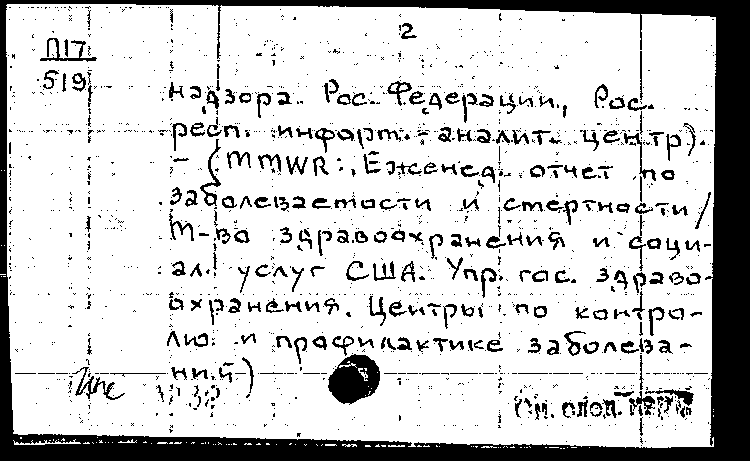 2
П17
519
надзора Рос. Федерации, Рос.
респ. информ.-аналит. центр).
– (MMWR:, Еженед. отчет по
заболеваемости и смертности /
М-во здравоохранения и соци-
ал. услуг США. Упр. гос. здраво-
охранения. Центры по контро-
лю и профилактике заболева-
ний)
См. след.